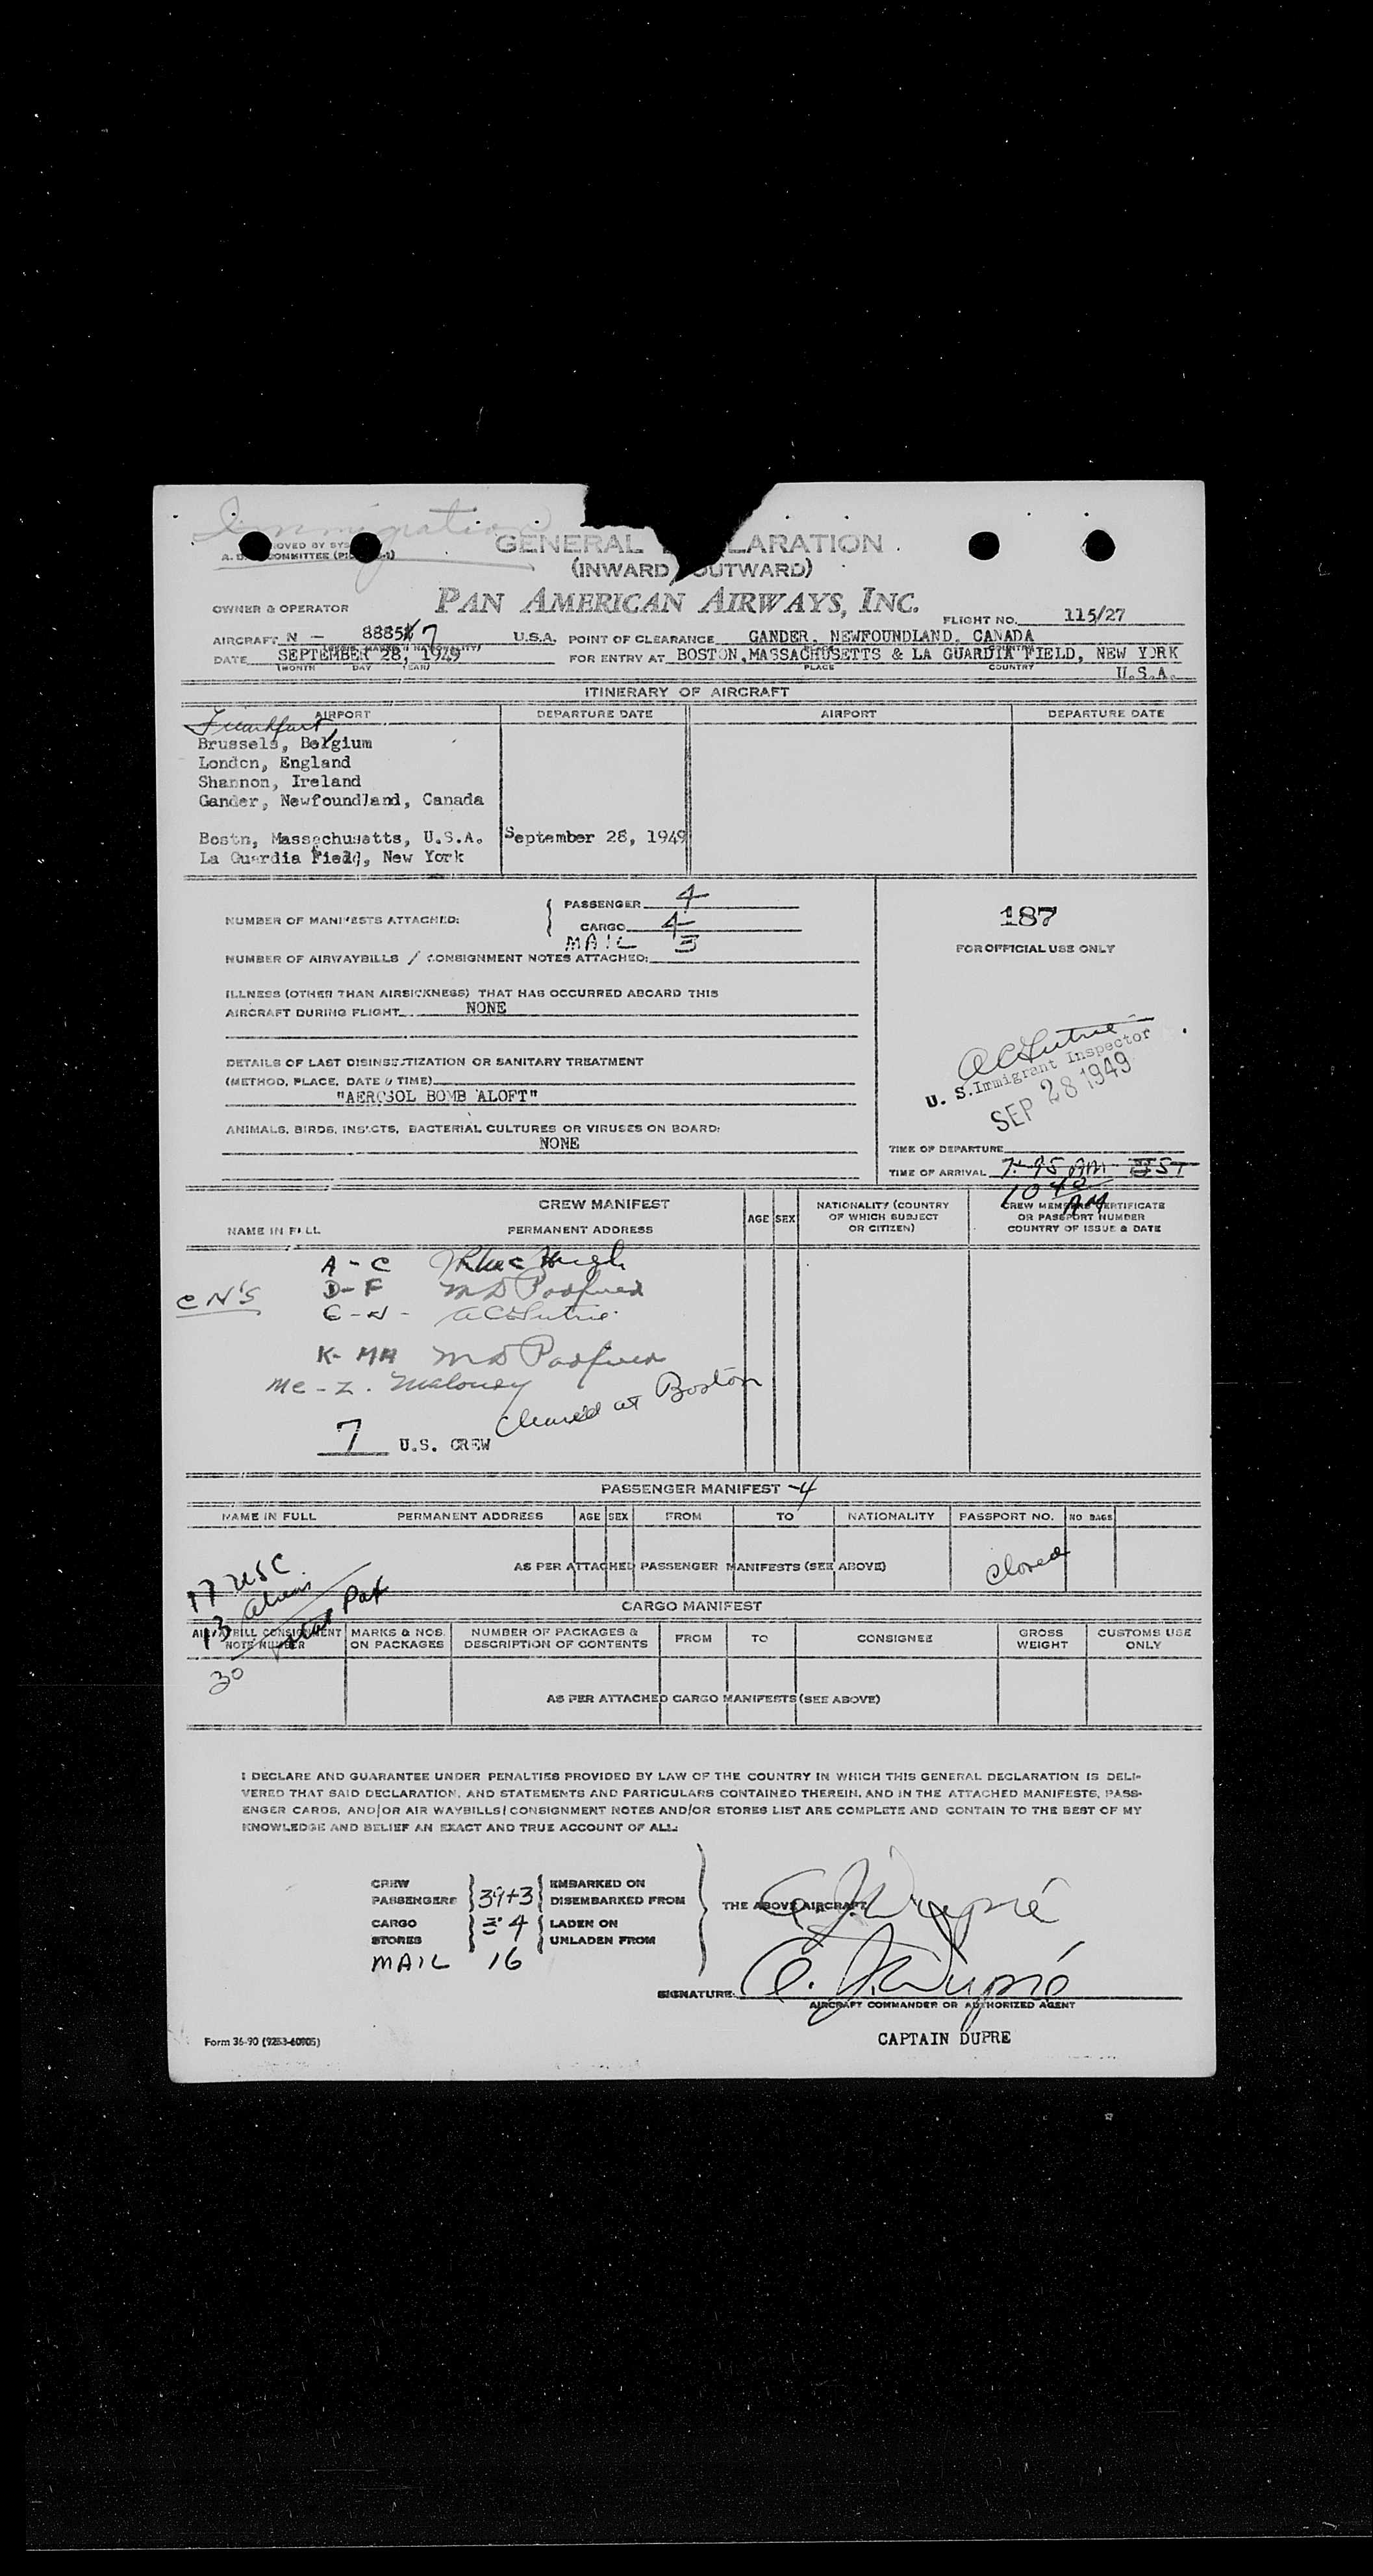 Immigration
GENERAL
(INWARD OUTWARD)
OWNER & OPERATOR PAN AMERICAN AIRWAYS, INC.
FLIGHT NO. 115/27
AIRCRAFT N - 8885 7 U.S.A. POINT OF CLEARANCE GANDER, NEWFOUNDLAND, CANADA
DATE SEPTEMBER 28, 1949 FOR ENTRY AT BOSTON, MASSACHUSETTS & LA GUARDIA FIELD, NEW YORK
(MONTH DAY YEAR) PLACE COUNTRY U.S.A.
ITINERARY OF AIRCRAFT
AIRPORT DEPARTURE DATE AIRPORT DEPARTURE DATE
Frankfurt
Brussels, Belgium
London, England
Shannon, Ireland
Gander, Newfoundland, Canada
Bostn, Massachusatts, U.S.A. September 28, 1949
La Guardia Field, New York
NUMBER OF MANIFESTS ATTACHED:
PASSENGER 4
CARGO 4
MAIL 3
NUMBER OF AIRWAYBILLS / CONSIGNMENT NOTES ATTACHED:
187
FOR OFFICIAL USE ONLY
ILLNESS (OTHER THAN AIRSICKNESS) THAT HAS OCCURRED ABOARD THIS
AIRCRAFT DURING FLIGHT NONE
DETAILS OF LAST DISINSECTIZATION OR SANITARY TREATMENT
(METHOD, PLACE, DATE & TIME)
"AEROSOL BOMB ALOFT"
ANIMALS, BIRDS, INSECTS, BACTERIAL CULTURES OR VIRUSES ON BOARD:
NONE
U. S. Immigrant Inspector
SEP 28 1949
TIME OF DEPARTURE
TIME OF ARRIVAL 7-45 AM EST
10 40 AM
CREW MANIFEST
NAME IN FULL PERMANENT ADDRESS AGE SEX NATIONALITY (COUNTRY OF WHICH SUBJECT OR CITIZEN) CREW MEMBERS CERTIFICATE OR PASSPORT NUMBER COUNTRY OF ISSUE & DATE
A - C
CN'S D - F
K - MA
Mc - Z. Maloney
Cleared at Boston
7 U.S. CREW
PASSENGER MANIFEST -4
NAME IN FULL PERMANENT ADDRESS AGE SEX FROM TO NATIONALITY PASSPORT NO. NO BAGS
AS PER ATTACHED PASSENGER MANIFESTS (SEE ABOVE)
Closed
17 USC
13 Aliens
30 Pax
CARGO MANIFEST
AIRWAYBILL CONSIGNMENT NOTE NUMBER MARKS & NOS. ON PACKAGES NUMBER OF PACKAGES & DESCRIPTION OF CONTENTS FROM TO CONSIGNEE GROSS WEIGHT CUSTOMS USE ONLY
AS PER ATTACHED CARGO MANIFESTS (SEE ABOVE)
I DECLARE AND GUARANTEE UNDER PENALTIES PROVIDED BY LAW OF THE COUNTRY IN WHICH THIS GENERAL DECLARATION IS DELI-
VERED THAT SAID DECLARATION, AND STATEMENTS AND PARTICULARS CONTAINED THEREIN, AND IN THE ATTACHED MANIFESTS, PASS-
ENGER CARDS, AND/OR AIR WAYBILLS/CONSIGNMENT NOTES AND/OR STORES LIST ARE COMPLETE AND CONTAIN TO THE BEST OF MY
KNOWLEDGE AND BELIEF AN EXACT AND TRUE ACCOUNT OF ALL:
CREW EMBARKED ON
PASSENGERS 39+3 DISEMBARKED FROM
THE ABOVE AIRCRAFT
CARGO 4 LADEN ON
STORES UNLADEN FROM
MAIL 16
SIGNATURE: A. J. Dupré
AIRCRAFT COMMANDER OR AUTHORIZED AGENT
CAPTAIN DUPRE
Form 36-90 (9253-60905)